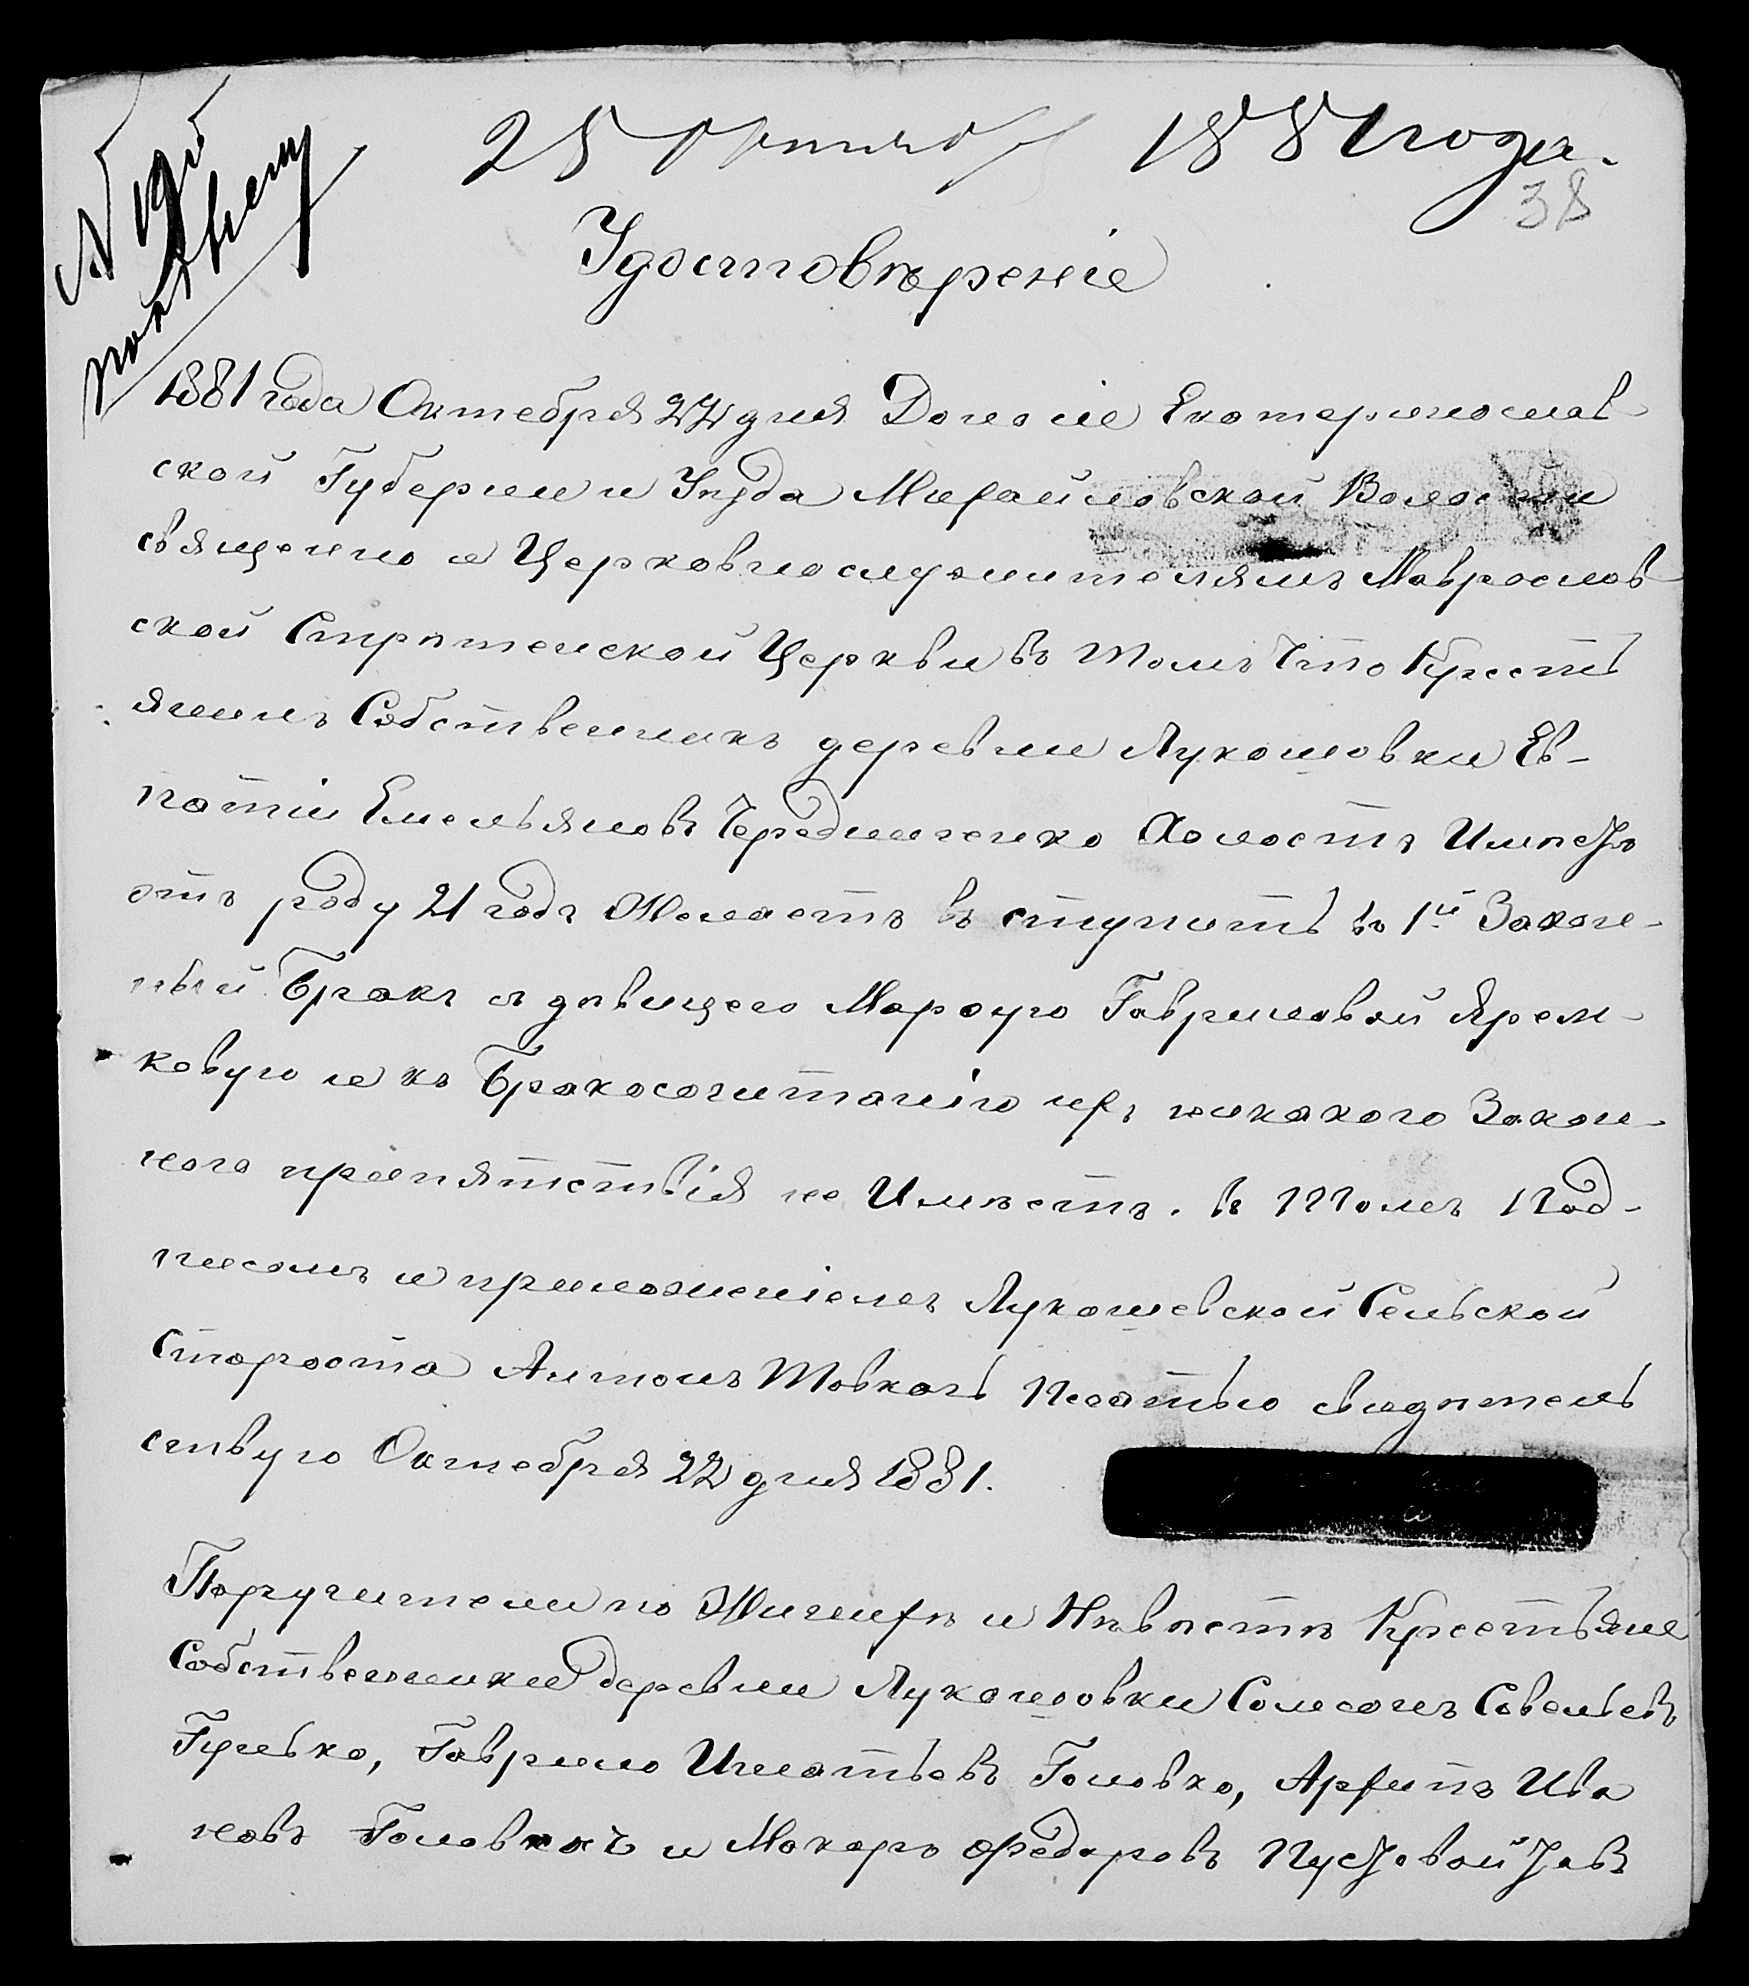 28 октября 1881 года.
38
Удостовѣреніе
1881 года Октебря 22 дня Дано сіе Екатеринослав
ской Губернии и Уѣзда Михайловской Волости
священно и Церковнослужителямъ Аавросиов
ской Стрѣтенской Церкви въ томъ что Кресть
янинъ Собственикъ деревни Лукашовки Ев-
патiи Емельяновъ Чередниченко Холостъ Имѣетъ
отъ роду 21 годъ Желаетъ въ ступить въ 1й Законе-
ный Бракъ съ дѣвицею Марфую Гавриловой Ярем-
ковую и къ Бракосочитанiю ихъ никакого Закон-
ного препятствiя не Имѣетъ. въ Томъ Под-
писомъ и приложенiемъ Лукашевской Сельской
Староста Антонъ Товкачъ Печатью свидѣтель
ствую Октебря 22 дня 1881.
Поручители по Жинихѣ и Нѣвѣстѣ Крестьяне
Собственники деревни Лукашовки Самсонъ Савельевъ
Гунько, Гаврило Игнатьевъ Головко, Архипъ Ива
новъ Головкачъ и Макаръ Федаровъ Пустовой Яв